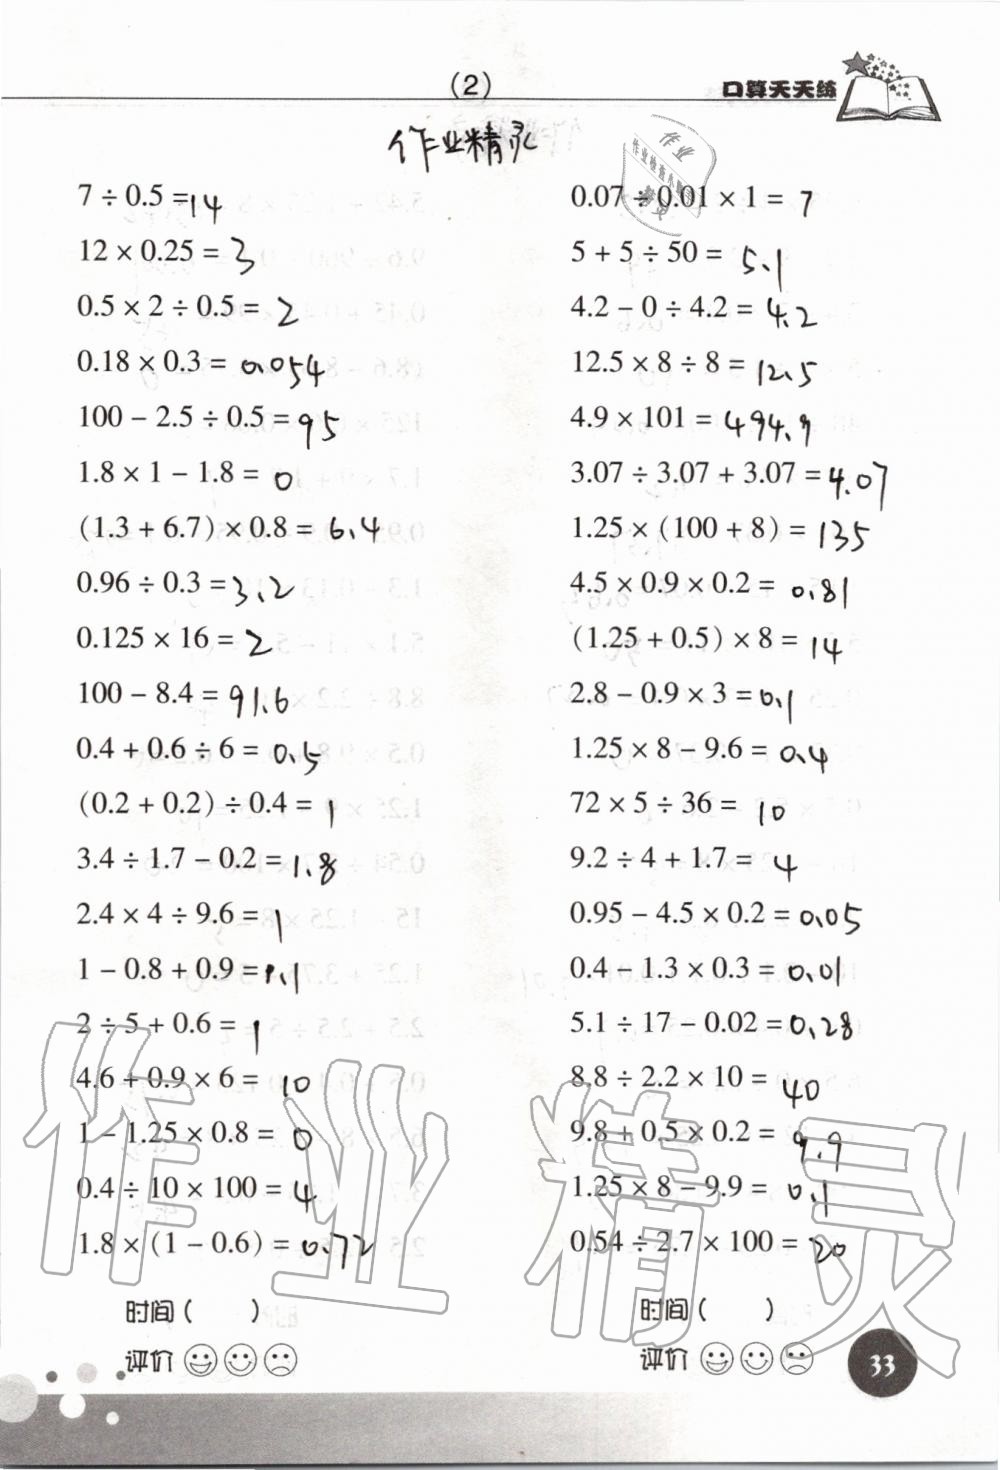 (2)
口算天天练
作业精灵
7 ÷ 0.5 = 14
12 × 0.25 = 3
0.5 × 2 ÷ 0.5 = 2
0.18 × 0.3 = 0.054
100 − 2.5 ÷ 0.5 = 95
1.8 × 1 − 1.8 = 0
(1.3 + 6.7) × 0.8 = 6.4
0.96 ÷ 0.3 = 3.2
0.125 × 16 = 2
100 − 8.4 = 91.6
0.4 + 0.6 ÷ 6 = 0.5
(0.2 + 0.2) ÷ 0.4 = 1
3.4 ÷ 1.7 − 0.2 = 1.8
2.4 × 4 ÷ 9.6 = 1
1 − 0.8 + 0.9 = 1.1
2 ÷ 5 + 0.6 = 1
4.6 + 0.9 × 6 = 10
1 − 1.25 × 0.8 = 0
0.4 ÷ 10 × 100 = 4
1.8 × (1 − 0.6) = 0.72
时间( )
评价
0.07 ÷ 0.01 × 1 = 7
5 + 5 ÷ 50 = 5.1
4.2 − 0 ÷ 4.2 = 4.2
12.5 × 8 ÷ 8 = 12.5
4.9 × 101 = 494.9
3.07 ÷ 3.07 + 3.07 = 4.07
1.25 × (100 + 8) = 135
4.5 × 0.9 × 0.2 = 0.81
(1.25 + 0.5) × 8 = 14
2.8 − 0.9 × 3 = 0.1
1.25 × 8 − 9.6 = 0.4
72 × 5 ÷ 36 = 10
9.2 ÷ 4 + 1.7 = 4
0.95 − 4.5 × 0.2 = 0.05
0.4 − 1.3 × 0.3 = 0.01
5.1 ÷ 17 − 0.02 = 0.28
8.8 ÷ 2.2 × 10 = 40
9.8 + 0.5 × 0.2 = 9.9
1.25 × 8 − 9.9 = 0.1
0.54 ÷ 2.7 × 100 = 20
时间( )
评价
33
作业精灵